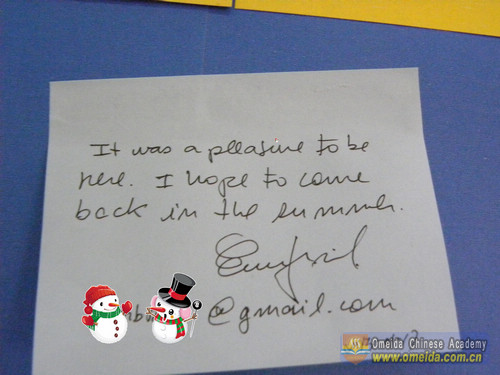 It was a pleasure to be
here. I hope to come
back in the summer.
@gmail.com
Omeida Chinese Academy
www.omeida.com.cn